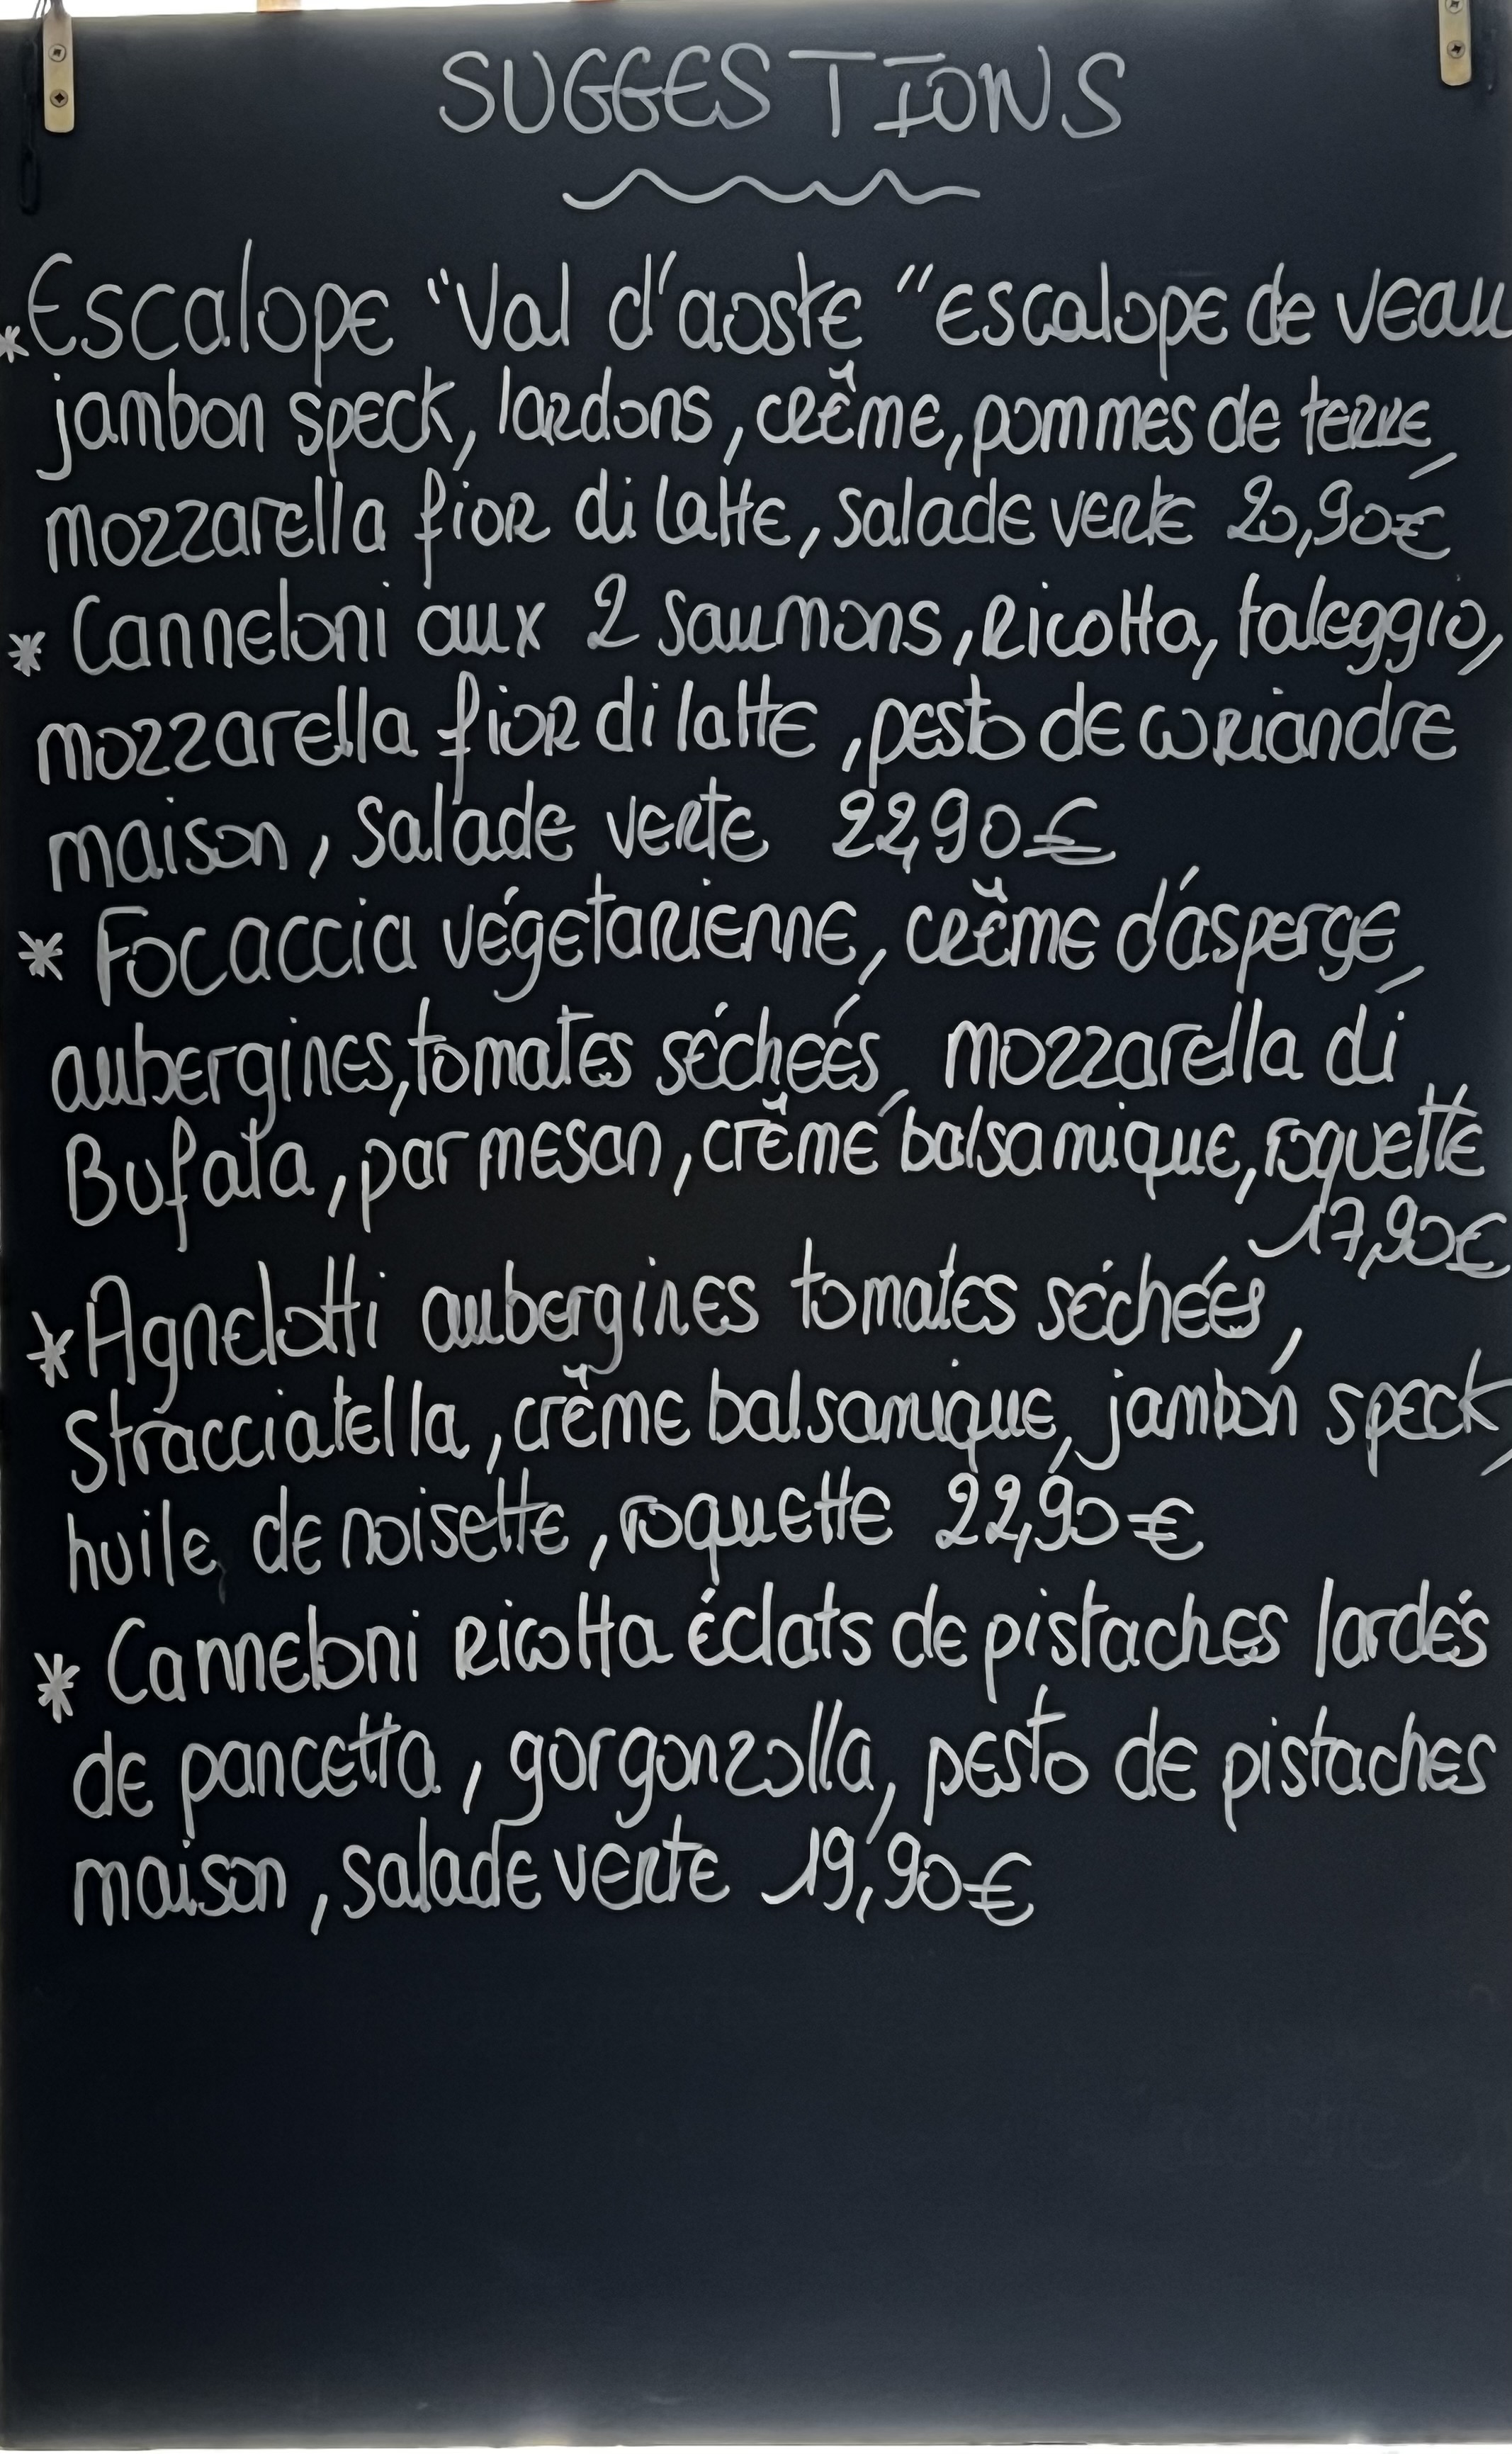 SUGGESTIONS
*Escalope "Val d'aoste "escalope de veau
jambon speck, lardons, crème, pommes de terre,
mozzarella fior di latte, salade verte 20,90€
* Canneloni aux 2 saumons, Ricotta, taleggio,
mozzarella fior di latte, pesto de coriandre
maison, salade verte 22,90€
* Focaccia végetarienne, crème d'asperge,
aubergines, tomates séchées, mozzarella di
Bufala, parmesan, crème balsamique, roquette
17,90€
*Agnelotti aubergines tomates séchées,
stracciatella, crème balsamique, jambon speck,
huile de noisette, roquette 22,90€
* Canneloni Ricotta éclats de pistaches lardés
de pancetta, gorgonzolla, pesto de pistaches
maison, salade verte 19,90€